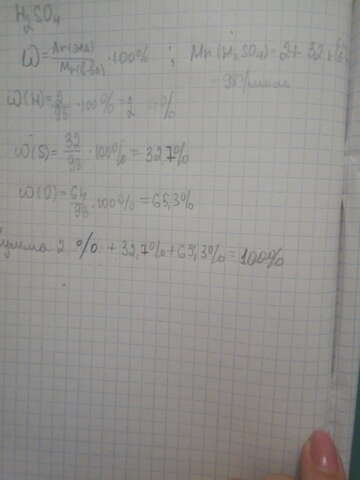 H2SO4
W = Ar(эла)/Mr(в-ва) · 100% ; Mr(H2SO4) = 2 + 32 +
= 98 г/моль
W(H) = 2/98 · 100% = 2 %
W(S) = 32/98 · 100% = 32,7%
W(O) = 64/98 · 100% = 65,3%
2 % + 32,7% + 65,3% = 100%